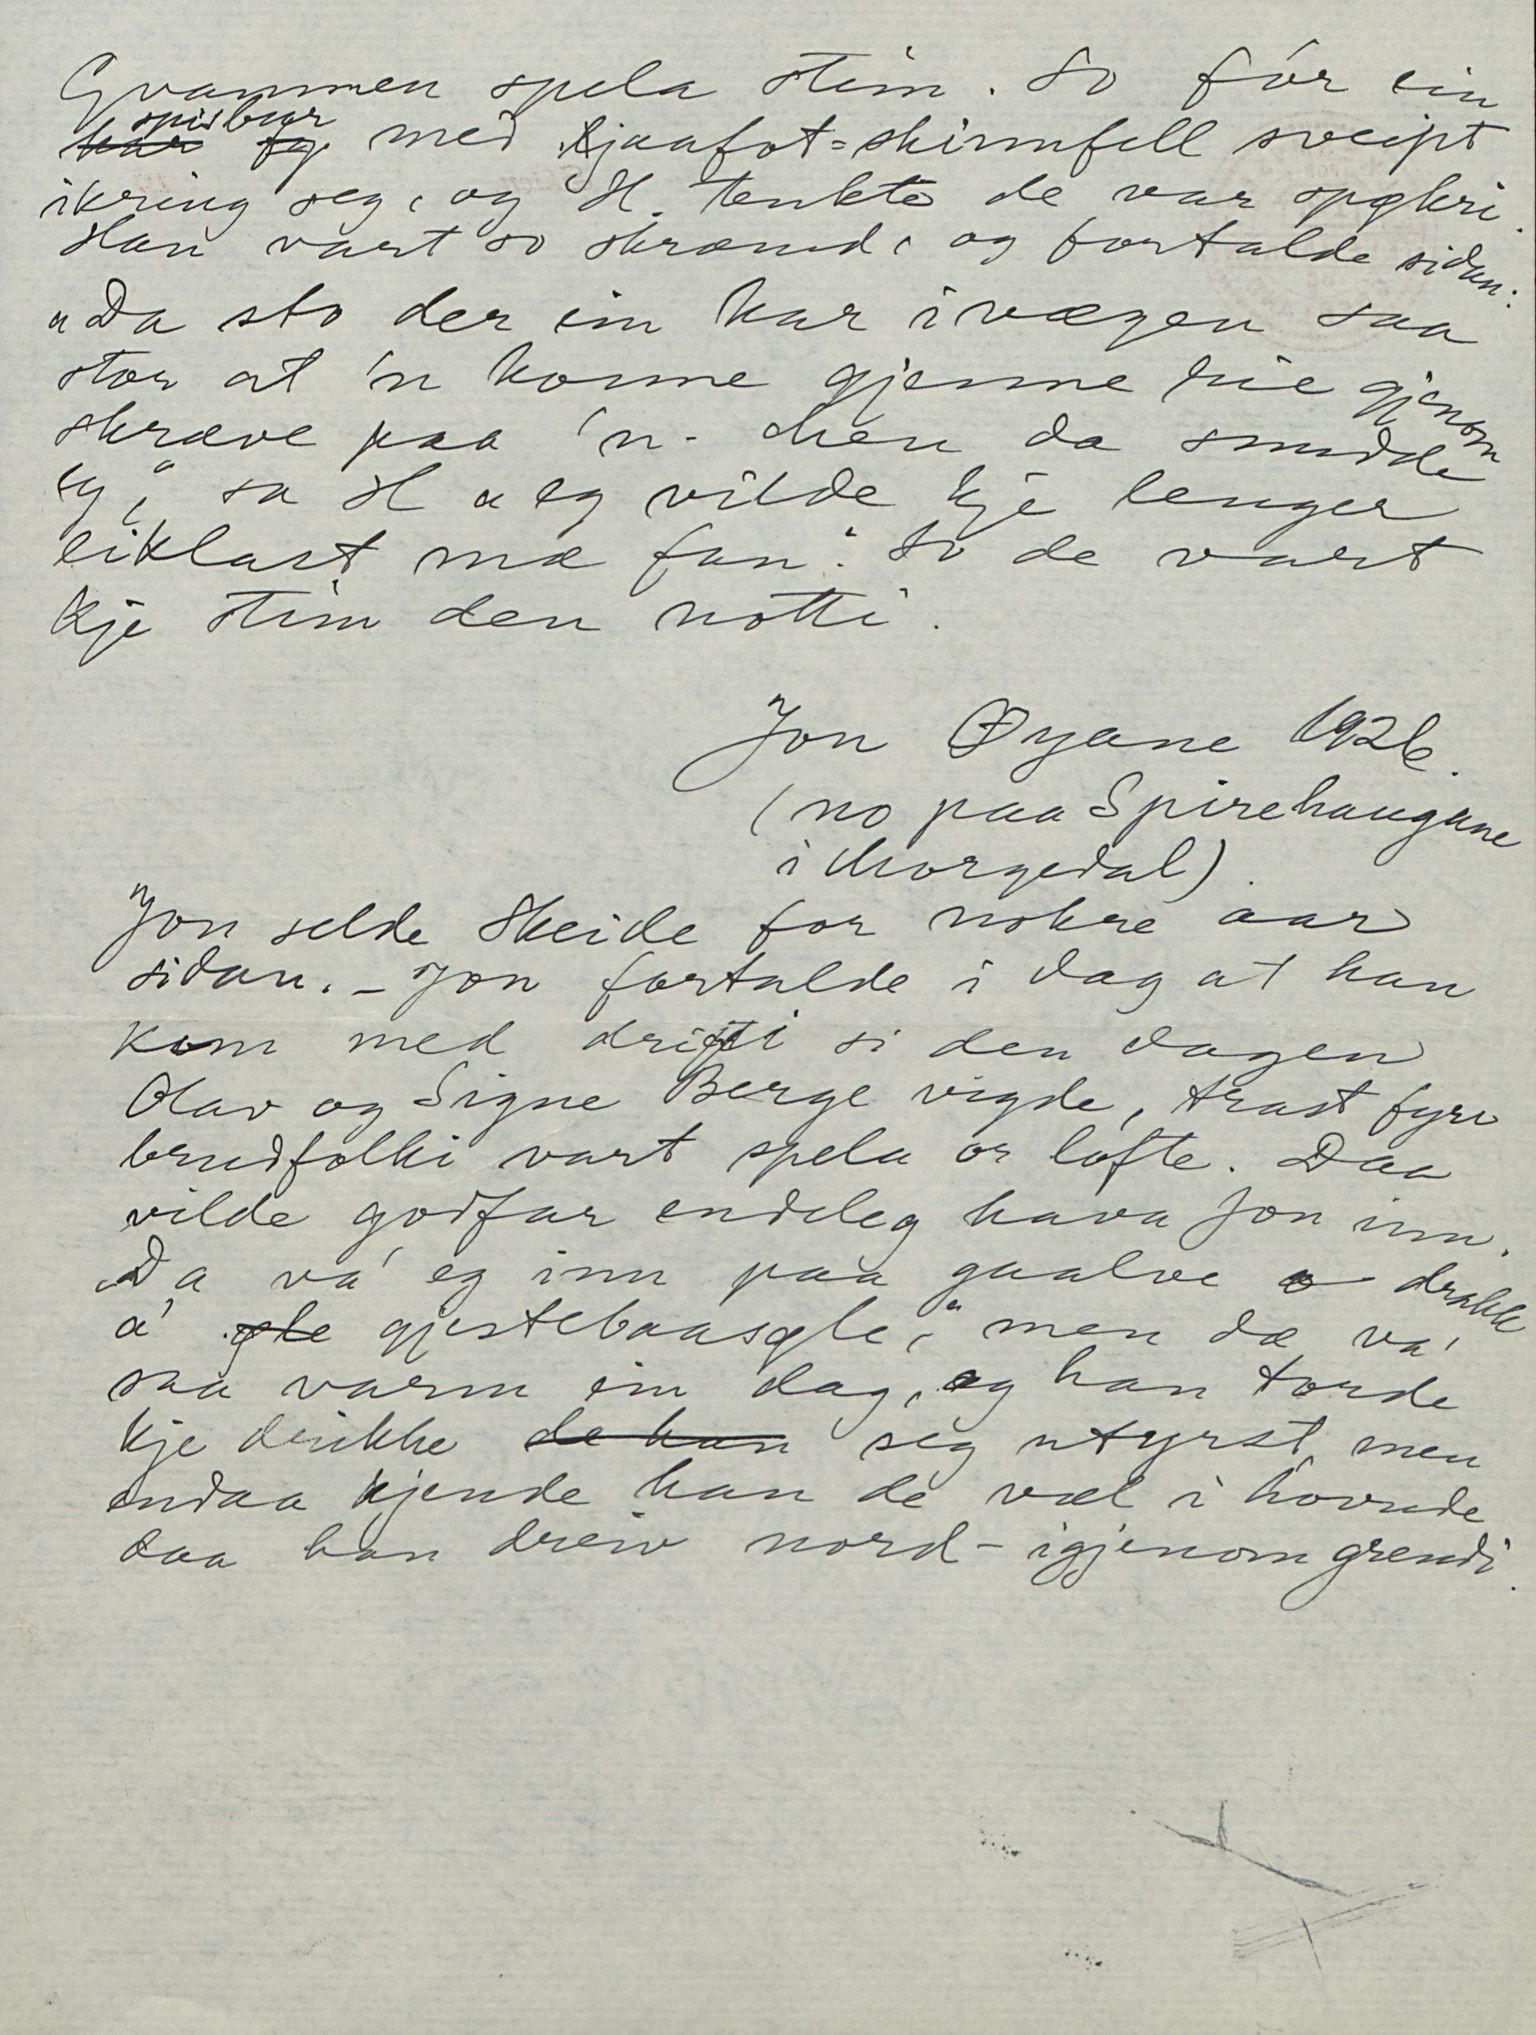 Gvammen spela stim. So fór ein
spisbuar
kar og med kjaafot-skinnfell sveipt
ikring seg, og H. tenkte de var spøkri.
Han vart so skræmd, og fortalde sidan:
"Da sto der ein kar i vægen saa
stor at 'n konne gjenne rie gjenom
skræve paa 'n. Men da snudde
eg," sa H "eg vilde kje lenger
eiklast mæ fan". So de vart
kje stim den notti.
Jon Øyane 1926.
(no paa Spirehaugane
i Morgedal).
Jon selde Skeide for nokre aar
sidan. - Jon fortalde i dag at han
kom med drifti si den dagen
Olav og Signe Berge vigde, trast fyre
brudfolki vart spela or lofte. Daa
vilde godfar endeleg hava Jon inn.
"Da va' eg inn paa gaalve o drakk
a' øle gjestebaasøle," men dæ va'
saa varm ein dag, og han torde
kje drikke de han seg utyrst, men
endaa kjende han de væl i hovude
daa han dreiv nord-igjenom grendi.